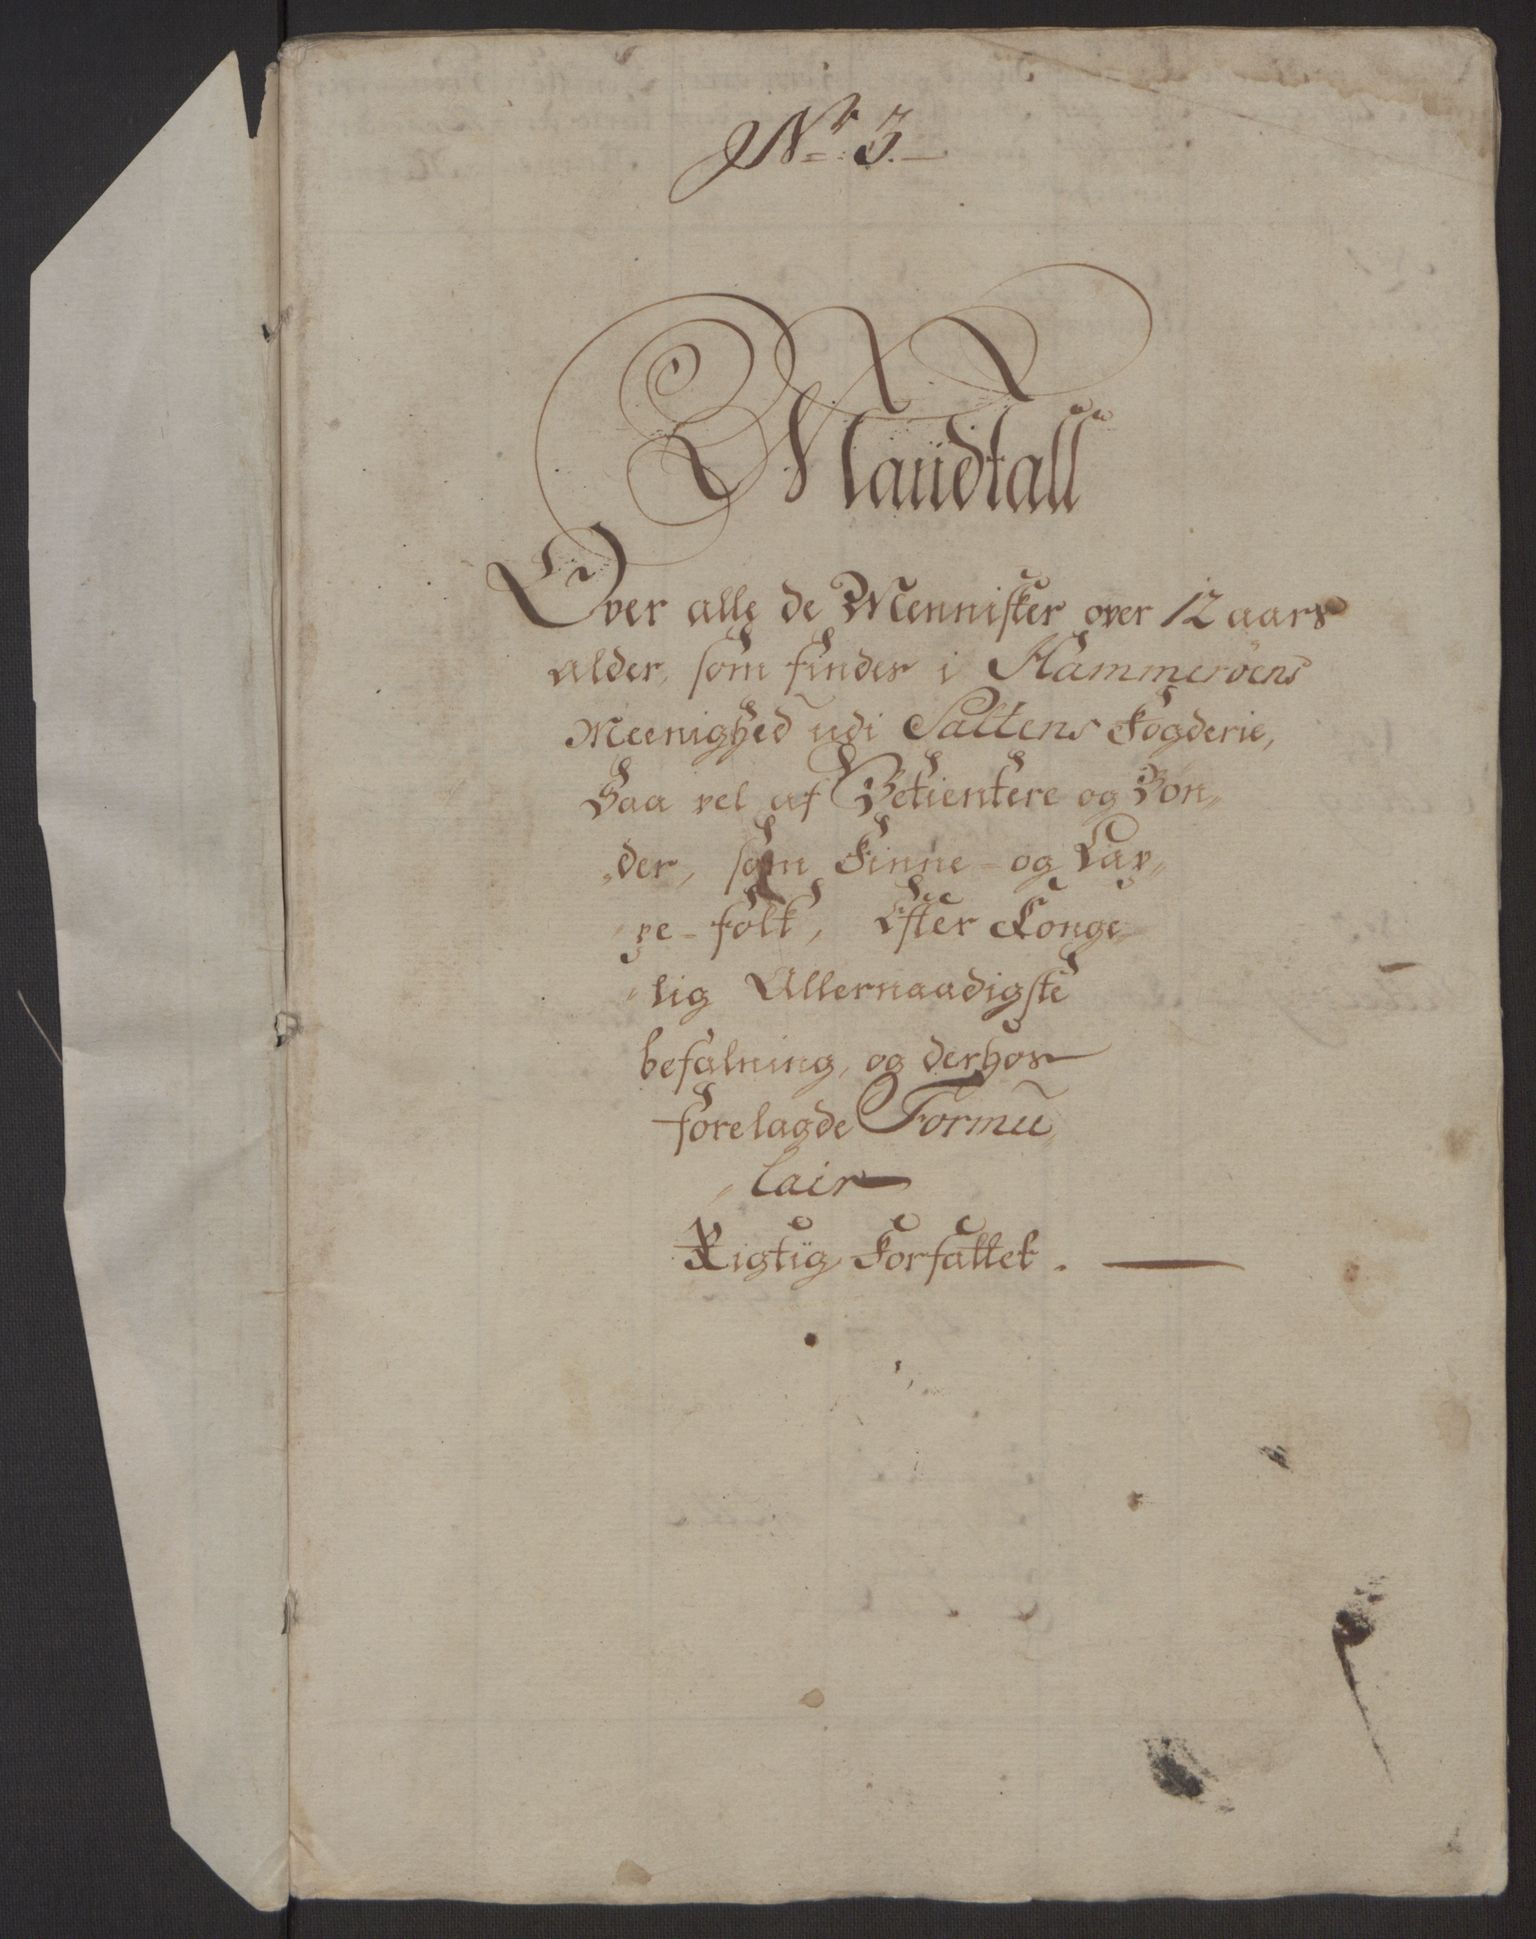 Nr. 3.
Mandtall
Over alle de Mennisker over 12 aars
alder, som findes i Hammerøens
Meenighed udi Saltens Fogderie,
Saa vel af Betientere og Bøn„
„der, som Finne- og Lap„
„pe-folk, Efter Konge„
„lig Allernaadigste
befalning, og derhos
forelagde Formu„
„lair
Rigtig Forfattet.